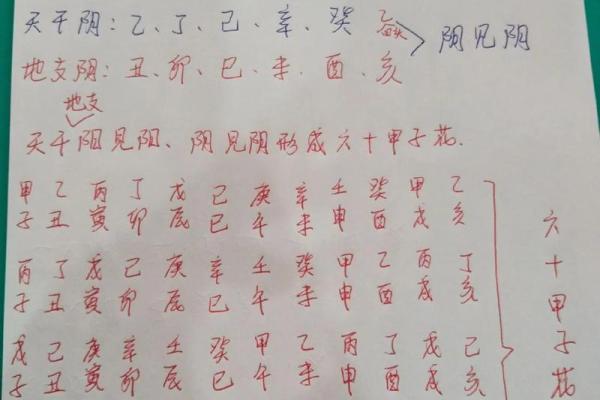 天干阴:乙、丁、己、辛、癸 阴见阴
地支阴:丑、卯、巳、未、酉、亥
地支
天干阳见阳、阴见阴形成六十甲子花.
甲乙丙丁戊己庚辛壬癸甲乙
子丑寅卯辰巳午未申酉戌亥
丙丁戊己庚辛壬癸甲乙丙丁
子丑寅卯辰巳午未申酉戌亥
戊己庚辛壬癸甲乙丙丁戊己
子丑寅卯辰巳午未申酉戌亥
六十甲子花